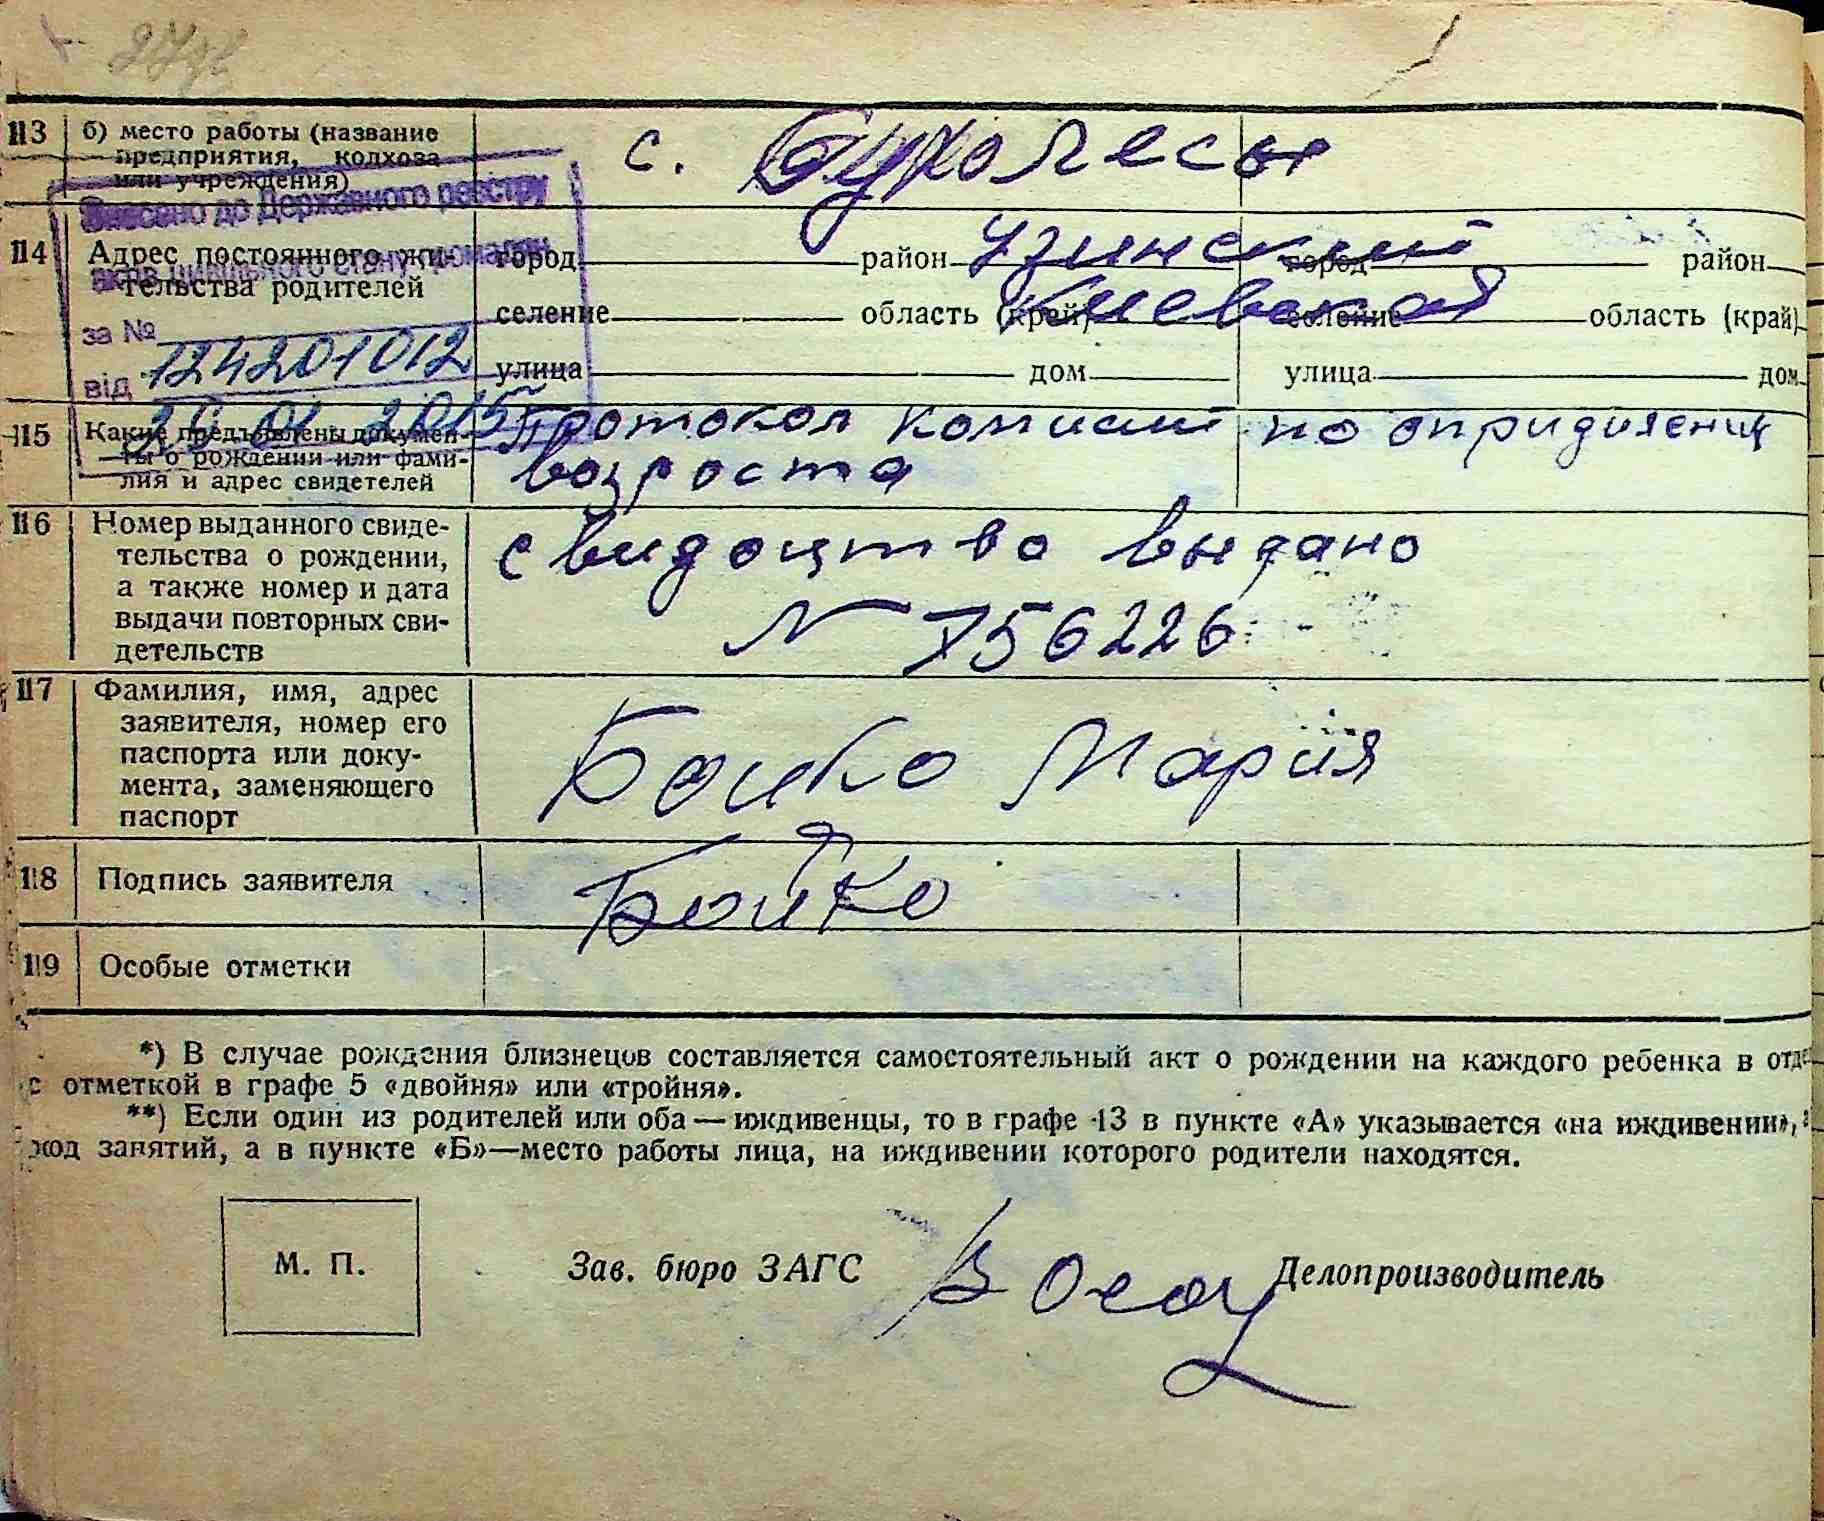 113 б) место работы (название предприятия, колхоза или учреждения) с. Сухолесы
Внесено до Державного реєстру
актів цивільного стану громадян
за № 124201012
від 01 2015
114 Адрес постоянного жительства родителей
город район Узинский город район
селение область (край) Киевской селение область (край)
улица дом улица дом
115 Какие предъявлены документы о рождении или фамилия и адрес свидетелей
Протокол комисии по опридиления
возроста
116 Номер выданного свидетельства о рождении, а также номер и дата выдачи повторных свидетельств
свидоцтво выдано
N 756226
117 Фамилия, имя, адрес заявителя, номер его паспорта или документа, заменяющего паспорт
Боико Мария
118 Подпись заявителя Бойко
119 Особые отметки
*) В случае рождения близнецов составляется самостоятельный акт о рождении на каждого ребенка в
с отметкой в графе 5 «двойня» или «тройня».
**) Если один из родителей или оба — иждивенцы, то в графе 13 в пункте «А» указывается «на иждивении»,
занятий, а в пункте «Б»—место работы лица, на иждивении которого родители находятся.
М. П. Зав. бюро ЗАГС Делопроизводитель